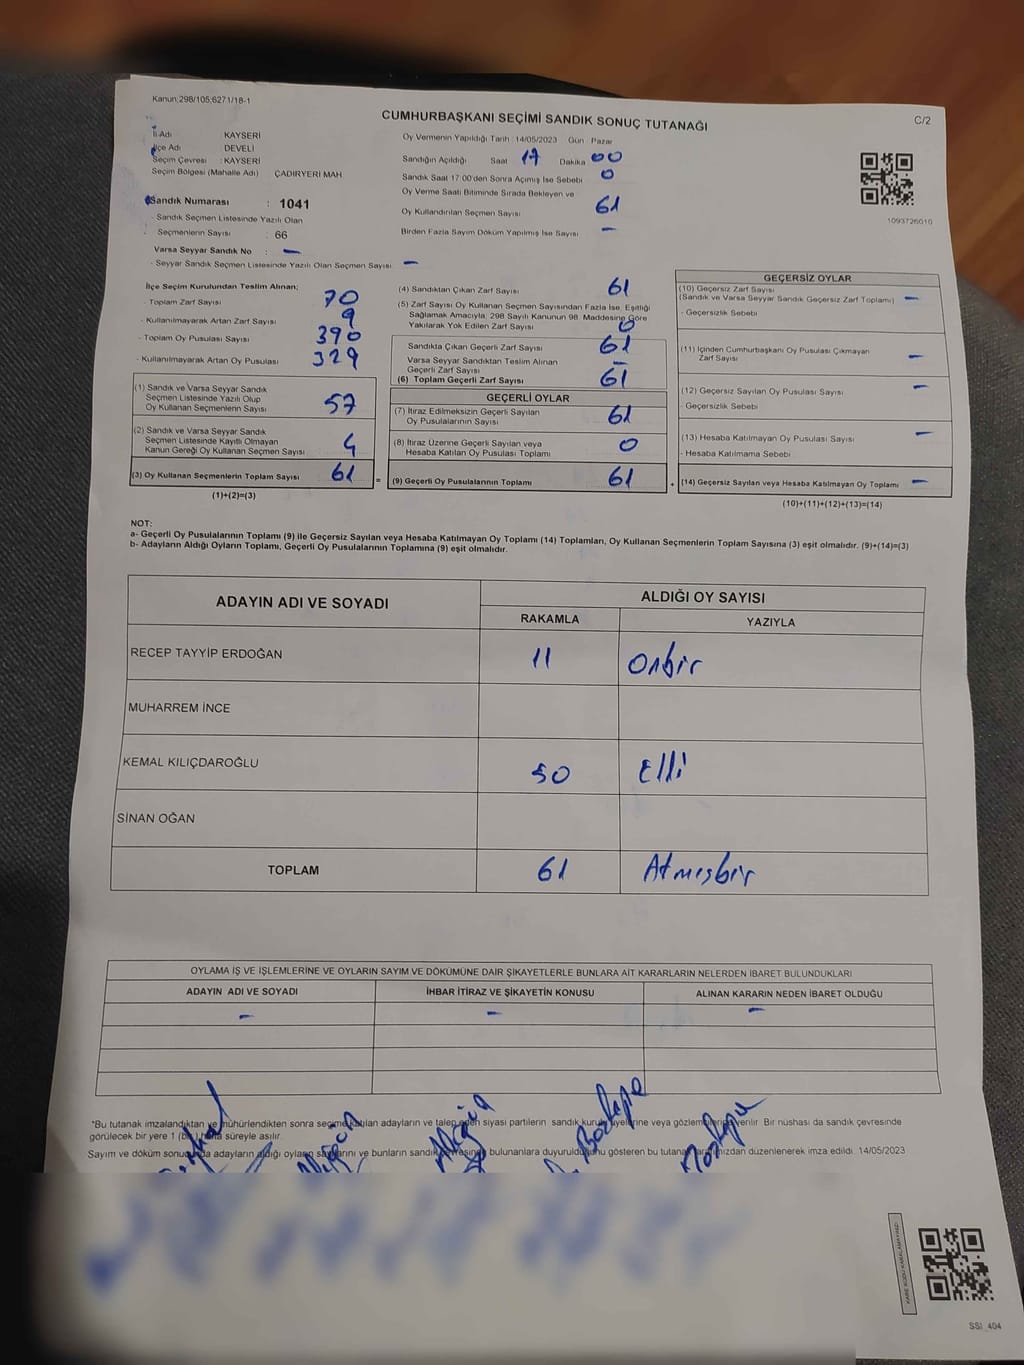 Kanun:298/105;6271/18-1
C/2
CUMHURBAŞKANI SEÇİMİ SANDIK SONUÇ TUTANAĞI
İl Adı KAYSERİ
İlçe Adı DEVELİ
Seçim Çevresi : KAYSERİ
Seçim Bölgesi (Mahalle Adı) ÇADIRYERİ MAH
Sandık Numarası : 1041
- Sandık Seçmen Listesinde Yazılı Olan
Seçmenlerin Sayısı : 66
Varsa Seyyar Sandık No : –
- Seyyar Sandık Seçmen Listesinde Yazılı Olan Seçmen Sayısı –
Oy Vermenin Yapıldığı Tarih : 14/05/2023 Gün : Pazar
Sandığın Açıldığı Saat 17 Dakika 00
Sandık Saat 17:00'den Sonra Açımış İse Sebebi 0
Oy Verme Saati Bitiminde Sırada Bekleyen ve
Oy Kullandırılan Seçmen Sayısı 61
Birden Fazla Sayım Döküm Yapılmış İse Sayısı –
1093726010
İlçe Seçim Kurulundan Teslim Alınan;
- Toplam Zarf Sayısı 70
- Kullanılmayarak Artan Zarf Sayısı 9
- Toplam Oy Pusulası Sayısı 390
- Kullanılmayarak Artan Oy Pusulası 329
(1) Sandık ve Varsa Seyyar Sandık
Seçmen Listesinde Yazılı Olup
Oy Kullanan Seçmenlerin Sayısı 57
(2) Sandık ve Varsa Seyyar Sandık
Seçmen Listesinde Kayıtlı Olmayan
Kanun Gereği Oy Kullanan Seçmen Sayısı 4
(3) Oy Kullanan Seçmenlerin Toplam Sayısı 61
(1)+(2)=(3)
=
(4) Sandıktan Çıkan Zarf Sayısı 61
(5) Zarf Sayısı Oy Kullanan Seçmen Sayısından Fazla İse, Eşitliği
Sağlamak Amacıyla, 298 Sayılı Kanunun 98. Maddesine Göre
Yakılarak Yok Edilen Zarf Sayısı 0
Sandıkta Çıkan Geçerli Zarf Sayısı 61
Varsa Seyyar Sandıktan Teslim Alınan
Geçerli Zarf Sayısı –
(6) Toplam Geçerli Zarf Sayısı 61
GEÇERLİ OYLAR
(7) İtiraz Edilmeksizin Geçerli Sayılan
Oy Pusulalarının Sayısı 61
(8) İtiraz Üzerine Geçerli Sayılan veya
Hesaba Katılan Oy Pusulası Toplamı 0
(9) Geçerli Oy Pusulalarının Toplamı 61
+
GEÇERSİZ OYLAR
(10) Geçersiz Zarf Sayısı
(Sandık ve Varsa Seyyar Sandık Geçersiz Zarf Toplamı) –
- Geçersizlik Sebebi
(11) İçinden Cumhurbaşkanı Oy Pusulası Çıkmayan
Zarf Sayısı –
(12) Geçersiz Sayılan Oy Pusulası Sayısı –
- Geçersizlik Sebebi
(13) Hesaba Katılmayan Oy Pusulası Sayısı –
- Hesaba Katılmama Sebebi
(14) Geçersiz Sayılan veya Hesaba Katılmayan Oy Toplamı –
(10)+(11)+(12)+(13)=(14)
NOT:
a- Geçerli Oy Pusulalarının Toplamı (9) ile Geçersiz Sayılan veya Hesaba Katılmayan Oy Toplamı (14) Toplamları, Oy Kullanan Seçmenlerin Toplam Sayısına (3) eşit olmalıdır. (9)+(14)=(3)
b- Adayların Aldığı Oyların Toplamı, Geçerli Oy Pusulalarının Toplamına (9) eşit olmalıdır.
ADAYIN ADI VE SOYADI
ALDIĞI OY SAYISI
RAKAMLA YAZIYLA
RECEP TAYYİP ERDOĞAN 11 Onbir
MUHARREM İNCE
KEMAL KILIÇDAROĞLU 50 Elli
SİNAN OĞAN
TOPLAM 61 Atmışbir
OYLAMA İŞ VE İŞLEMLERİNE VE OYLARIN SAYIM VE DÖKÜMÜNE DAİR ŞİKAYETLERLE BUNLARA AİT KARARLARIN NELERDEN İBARET BULUNDUKLARI
ADAYIN ADI VE SOYADI İHBAR İTİRAZ VE ŞİKAYETİN KONUSU ALINAN KARARIN NEDEN İBARET OLDUĞU
– – –
*Bu tutanak imzalandıktan ve mühürlendikten sonra seçime katılan adayların ve talep eden siyasi partilerin sandık kurulu üyelerine veya gözlemcilerine verilir. Bir nüshası da sandık çevresinde
görülecek bir yere 1 (bir) hafta süreyle asılır.
Sayım ve döküm sonucunda adayların aldığı oyların sayılarını ve bunların sandık çevresinde bulunanlara duyurulduğunu gösteren bu tutanak tarafımızdan düzenlenerek imza edildi. 14/05/2023
KARE KODU KARALAMAYINIZ!
SSİ 404